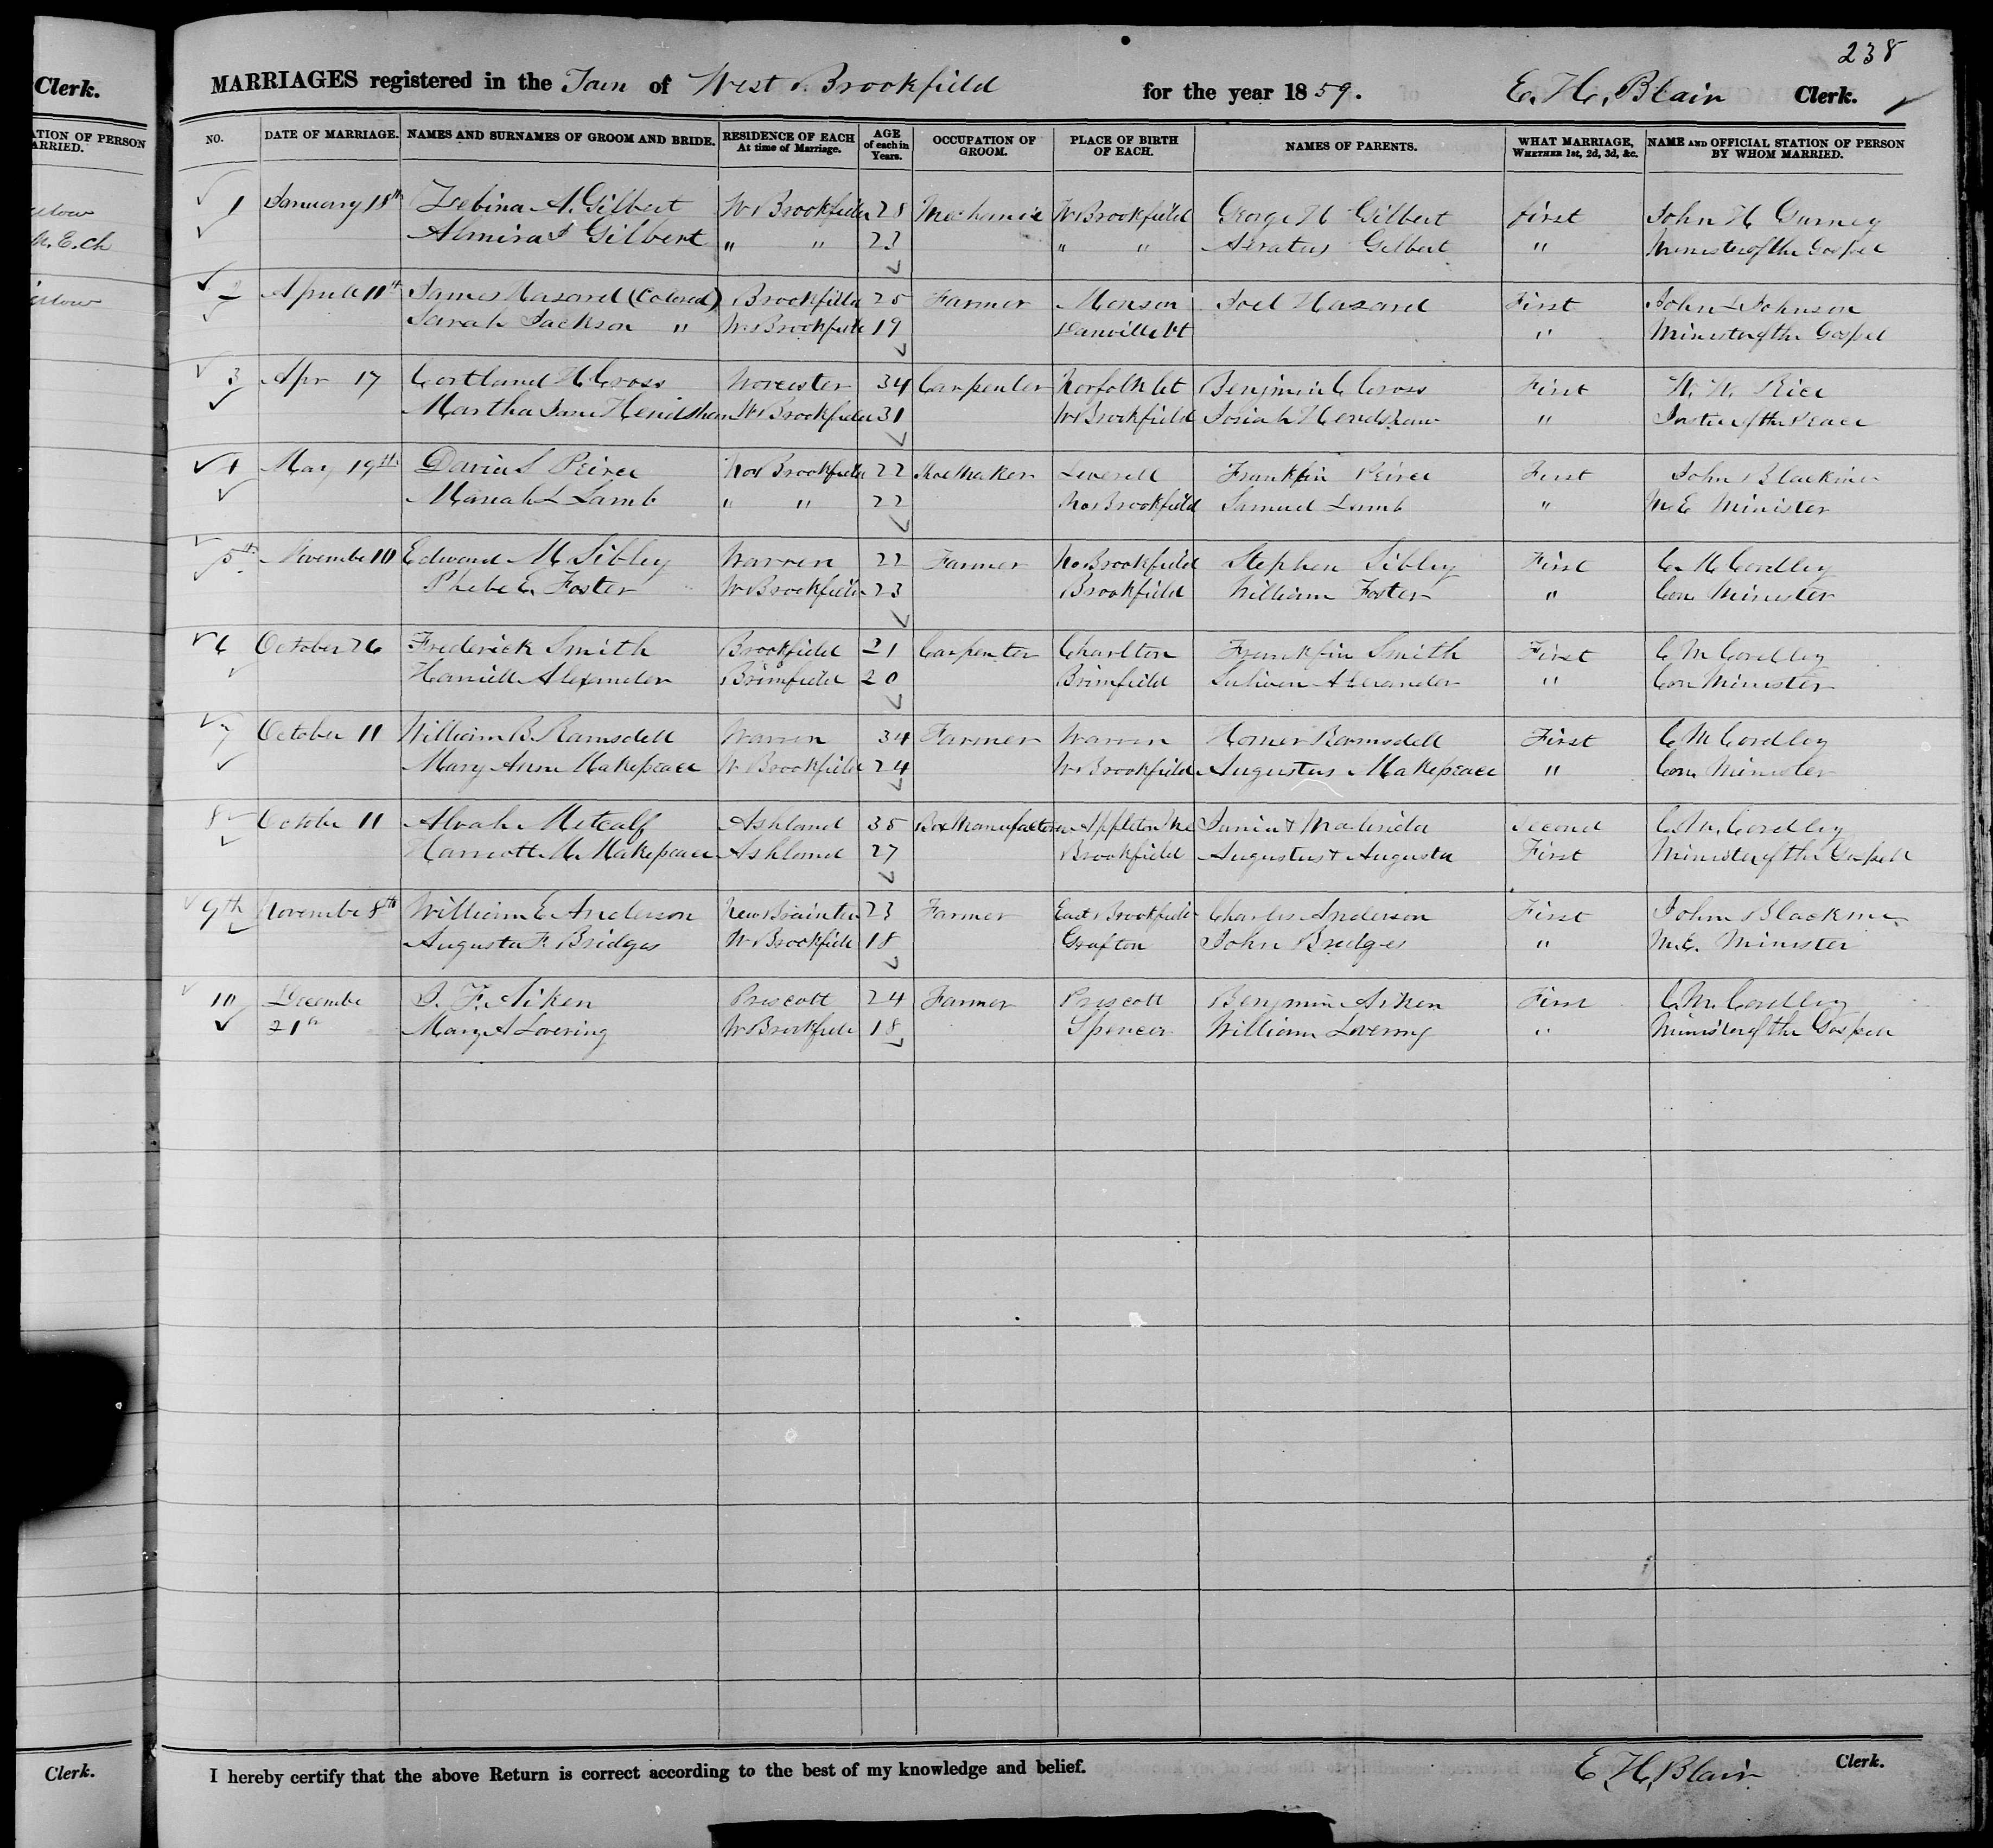 238
Clerk.
MARRIAGES registered in the Town of West Brookfield for the year 1859. E. H. Blair Clerk.
ATION OF PERSON
ARRIED.
NO. DATE OF MARRIAGE. NAMES AND SURNAMES OF GROOM AND BRIDE. RESIDENCE OF EACH At time of Marriage. AGE of each in Years. OCCUPATION OF GROOM. PLACE OF BIRTH OF EACH. NAMES OF PARENTS. WHAT MARRIAGE, WHETHER 1st, 2d, 3d, &c. NAME AND OFFICIAL STATION OF PERSON BY WHOM MARRIED.
1 January 18th Zebina A. Gilbert W Brookfield 28 Mechanic W Brookfield George H Gilbert first John H Gurney
Almira Gilbert " " 23 " " Gilbert " Minister of the Gospel
M. E. Ch
2 April 11th James Hazard (Colored) Brookfield 25 Farmer Monson Joel Hazard First John Johnson
Sarah Jackson " W Brookfield 19 Danville Vt " Minister of the Gospel
3 Apr 17 Cortland H Cross Worcester 34 Carpenter Norfolk Ct Benjmin C Cross First W. W. Rice
Martha Jane Hendshaw W Brookfield 31 W Brookfield Josiah Hendshaw " Justice of the Peace
4 May 19th David S Peirce No Brookfield 22 Shoe Maker Leverett Franklin Peirce First John Blackmer
Mariah L Lamb " " 22 No Brookfield Samuel Lamb " M E Minister
5th November 10 Edward M Sibley Warren 22 Farmer No Brookfield Stephen Sibley First C. M Cordley
Phebe E. Foster W Brookfield 23 Brookfield William Foster " Con Minister
6 October 26 Frederick Smith Brookfield 21 Carpenter Charlton Franklin Smith First C M Cordley
Harriett Alexander Brimfield 20 Brimfield Alexander " Con Minister
7 October 11 William B. Ramsdell Warren 34 Farmer Warren Homer Ramsdell First C M Cordley
Mary Ann Makepeace W Brookfield 24 W Brookfield Augustus Makepeace " Con Minister
8 October 11 Alvah Metcalf Ashland 35 Box Manufacturer Appleton Me Second C. M. Cordley
Harriott M. Makepeace Ashland 27 Brookfield Augustus & Augusta First Minister of the Gospell
9th November 8th William E. Anderson New Braintree 23 Farmer East Brookfield Charles Anderson First John Blackmer
Augusta F. Bridges W Brookfield 18 Grafton John Bridges " M. E. Minister
10 December S. F. Aiken Prescott 24 Farmer Prescott Benjmin Aiken First C. M. Cordley
21st Mary A Lovering W Brookfield 18 Spencer William Lovering " Minister of the Gospell
Clerk.
I hereby certify that the above Return is correct according to the best of my knowledge and belief. E. H. Blair Clerk.